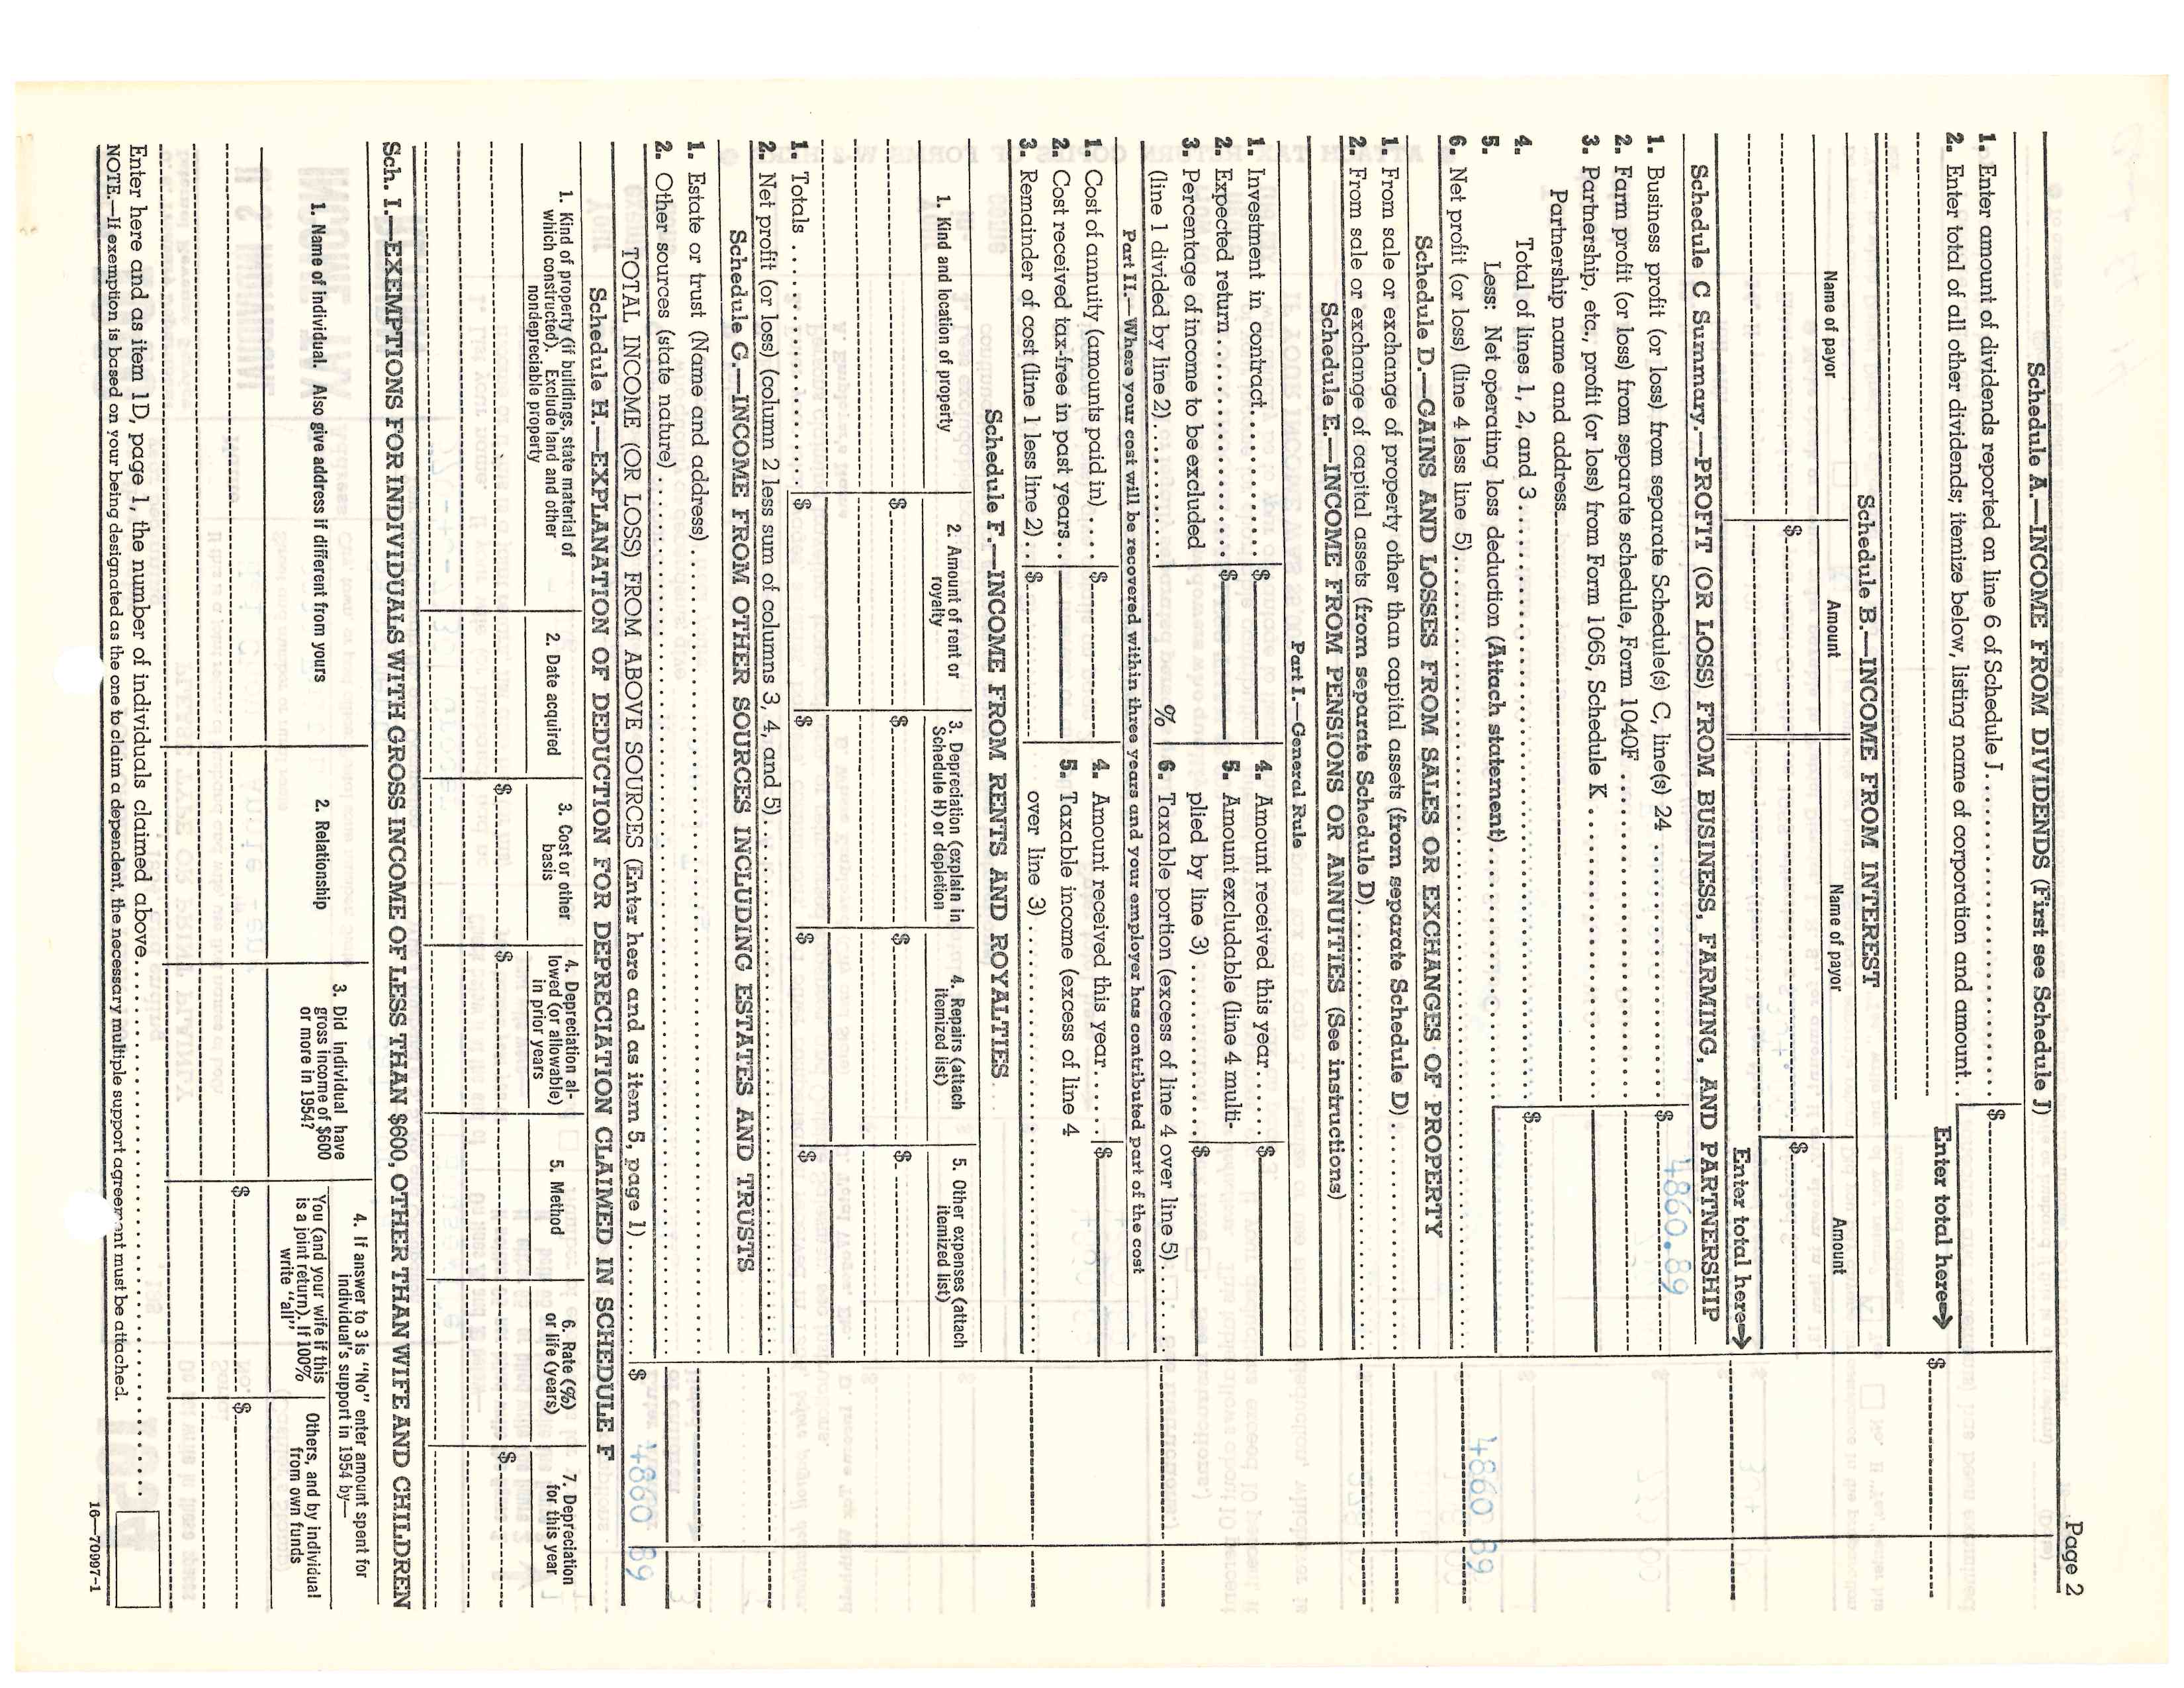 Page 2
Schedule A.—INCOME FROM DIVIDENDS (First see Schedule J)
1. Enter amount of dividends reported on line 6 of Schedule J. $
2. Enter total of all other dividends; itemize below, listing name of corporation and amount. .
Enter total here→ $
Schedule B.—INCOME FROM INTEREST
Name of payor Amount Name of payor Amount
$ $
Enter total here→
Schedule C Summary.—PROFIT (OR LOSS) FROM BUSINESS, FARMING, AND PARTNERSHIP
1. Business profit (or loss) from separate Schedule(s) C, line(s) 24 $ 4860.89
2. Farm profit (or loss) from separate schedule, Form 1040F
3. Partnership, etc., profit (or loss) from Form 1065, Schedule K
Partnership name and address
4. Total of lines 1, 2, and 3 $
5. Less: Net operating loss deduction (Attach statement)
6. Net profit (or loss) (line 4 less line 5) 4860 89
Schedule D.—GAINS AND LOSSES FROM SALES OR EXCHANGES OF PROPERTY
1. From sale or exchange of property other than capital assets (from separate Schedule D)
2. From sale or exchange of capital assets (from separate Schedule D)
Schedule E.—INCOME FROM PENSIONS OR ANNUITIES (See instructions)
Part I.—General Rule
1. Investment in contract $ 4. Amount received this year $
2. Expected return $ 5. Amount excludable (line 4 multi-
3. Percentage of income to be excluded plied by line 3) $
(line 1 divided by line 2) % 6. Taxable portion (excess of line 4 over line 5)
Part II.—Where your cost will be recovered within three years and your employer has contributed part of the cost
1. Cost of annuity (amounts paid in) $ 4. Amount received this year $
2. Cost received tax-free in past years 5. Taxable income (excess of line 4
3. Remainder of cost (line 1 less line 2) $ over line 3)
Schedule F.—INCOME FROM RENTS AND ROYALTIES
1. Kind and location of property 2. Amount of rent or royalty 3. Depreciation (explain in Schedule H) or depletion 4. Repairs (attach itemized list) 5. Other expenses (attach itemized list)
$ $ $ $
1. Totals $ $ $ $
2. Net profit (or loss) (column 2 less sum of columns 3, 4, and 5)
Schedule G.—INCOME FROM OTHER SOURCES INCLUDING ESTATES AND TRUSTS
1. Estate or trust (Name and address)
2. Other sources (state nature)
TOTAL INCOME (OR LOSS) FROM ABOVE SOURCES (Enter here and as item 5, page 1) $ 4860 89
Schedule H.—EXPLANATION OF DEDUCTION FOR DEPRECIATION CLAIMED IN SCHEDULE F
1. Kind of property (if buildings, state material of which constructed). Exclude land and other nondepreciable property 2. Date acquired 3. Cost or other basis 4. Depreciation al-lowed (or allowable) in prior years 5. Method 6. Rate (%) or life (years) 7. Depreciation for this year
$ $ $
Sch. I.—EXEMPTIONS FOR INDIVIDUALS WITH GROSS INCOME OF LESS THAN $600, OTHER THAN WIFE AND CHILDREN
1. Name of individual. Also give address if different from yours 2. Relationship 3. Did individual have gross income of $600 or more in 1954? 4. If answer to 3 is "No" enter amount spent for individual's support in 1954 by—
You (and your wife if this is a joint return). If 100% write "all" Others, and by individual from own funds
$ $
Enter here and as item 1D, page 1, the number of individuals claimed above
NOTE.—If exemption is based on your being designated as the one to claim a dependent, the necessary multiple support agreement must be attached.
16—70997-1